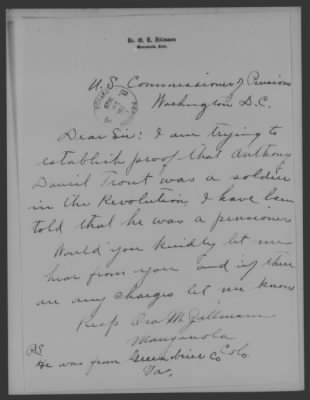 Manzanola, Colo.
U.S. Commissioner of Pensions
Washington D.C.
Dear Sir: I am trying to
establish proof that Anthony
Daniel Trout was a soldier
in the Revolution, I have been
told that he was a pensioner
Would you kindly let me
hear from you and if there
are any charges let me know
Resp Ora M.
Manzanola
Colo.
P.S.
He was from Greenbrier Co
Va.